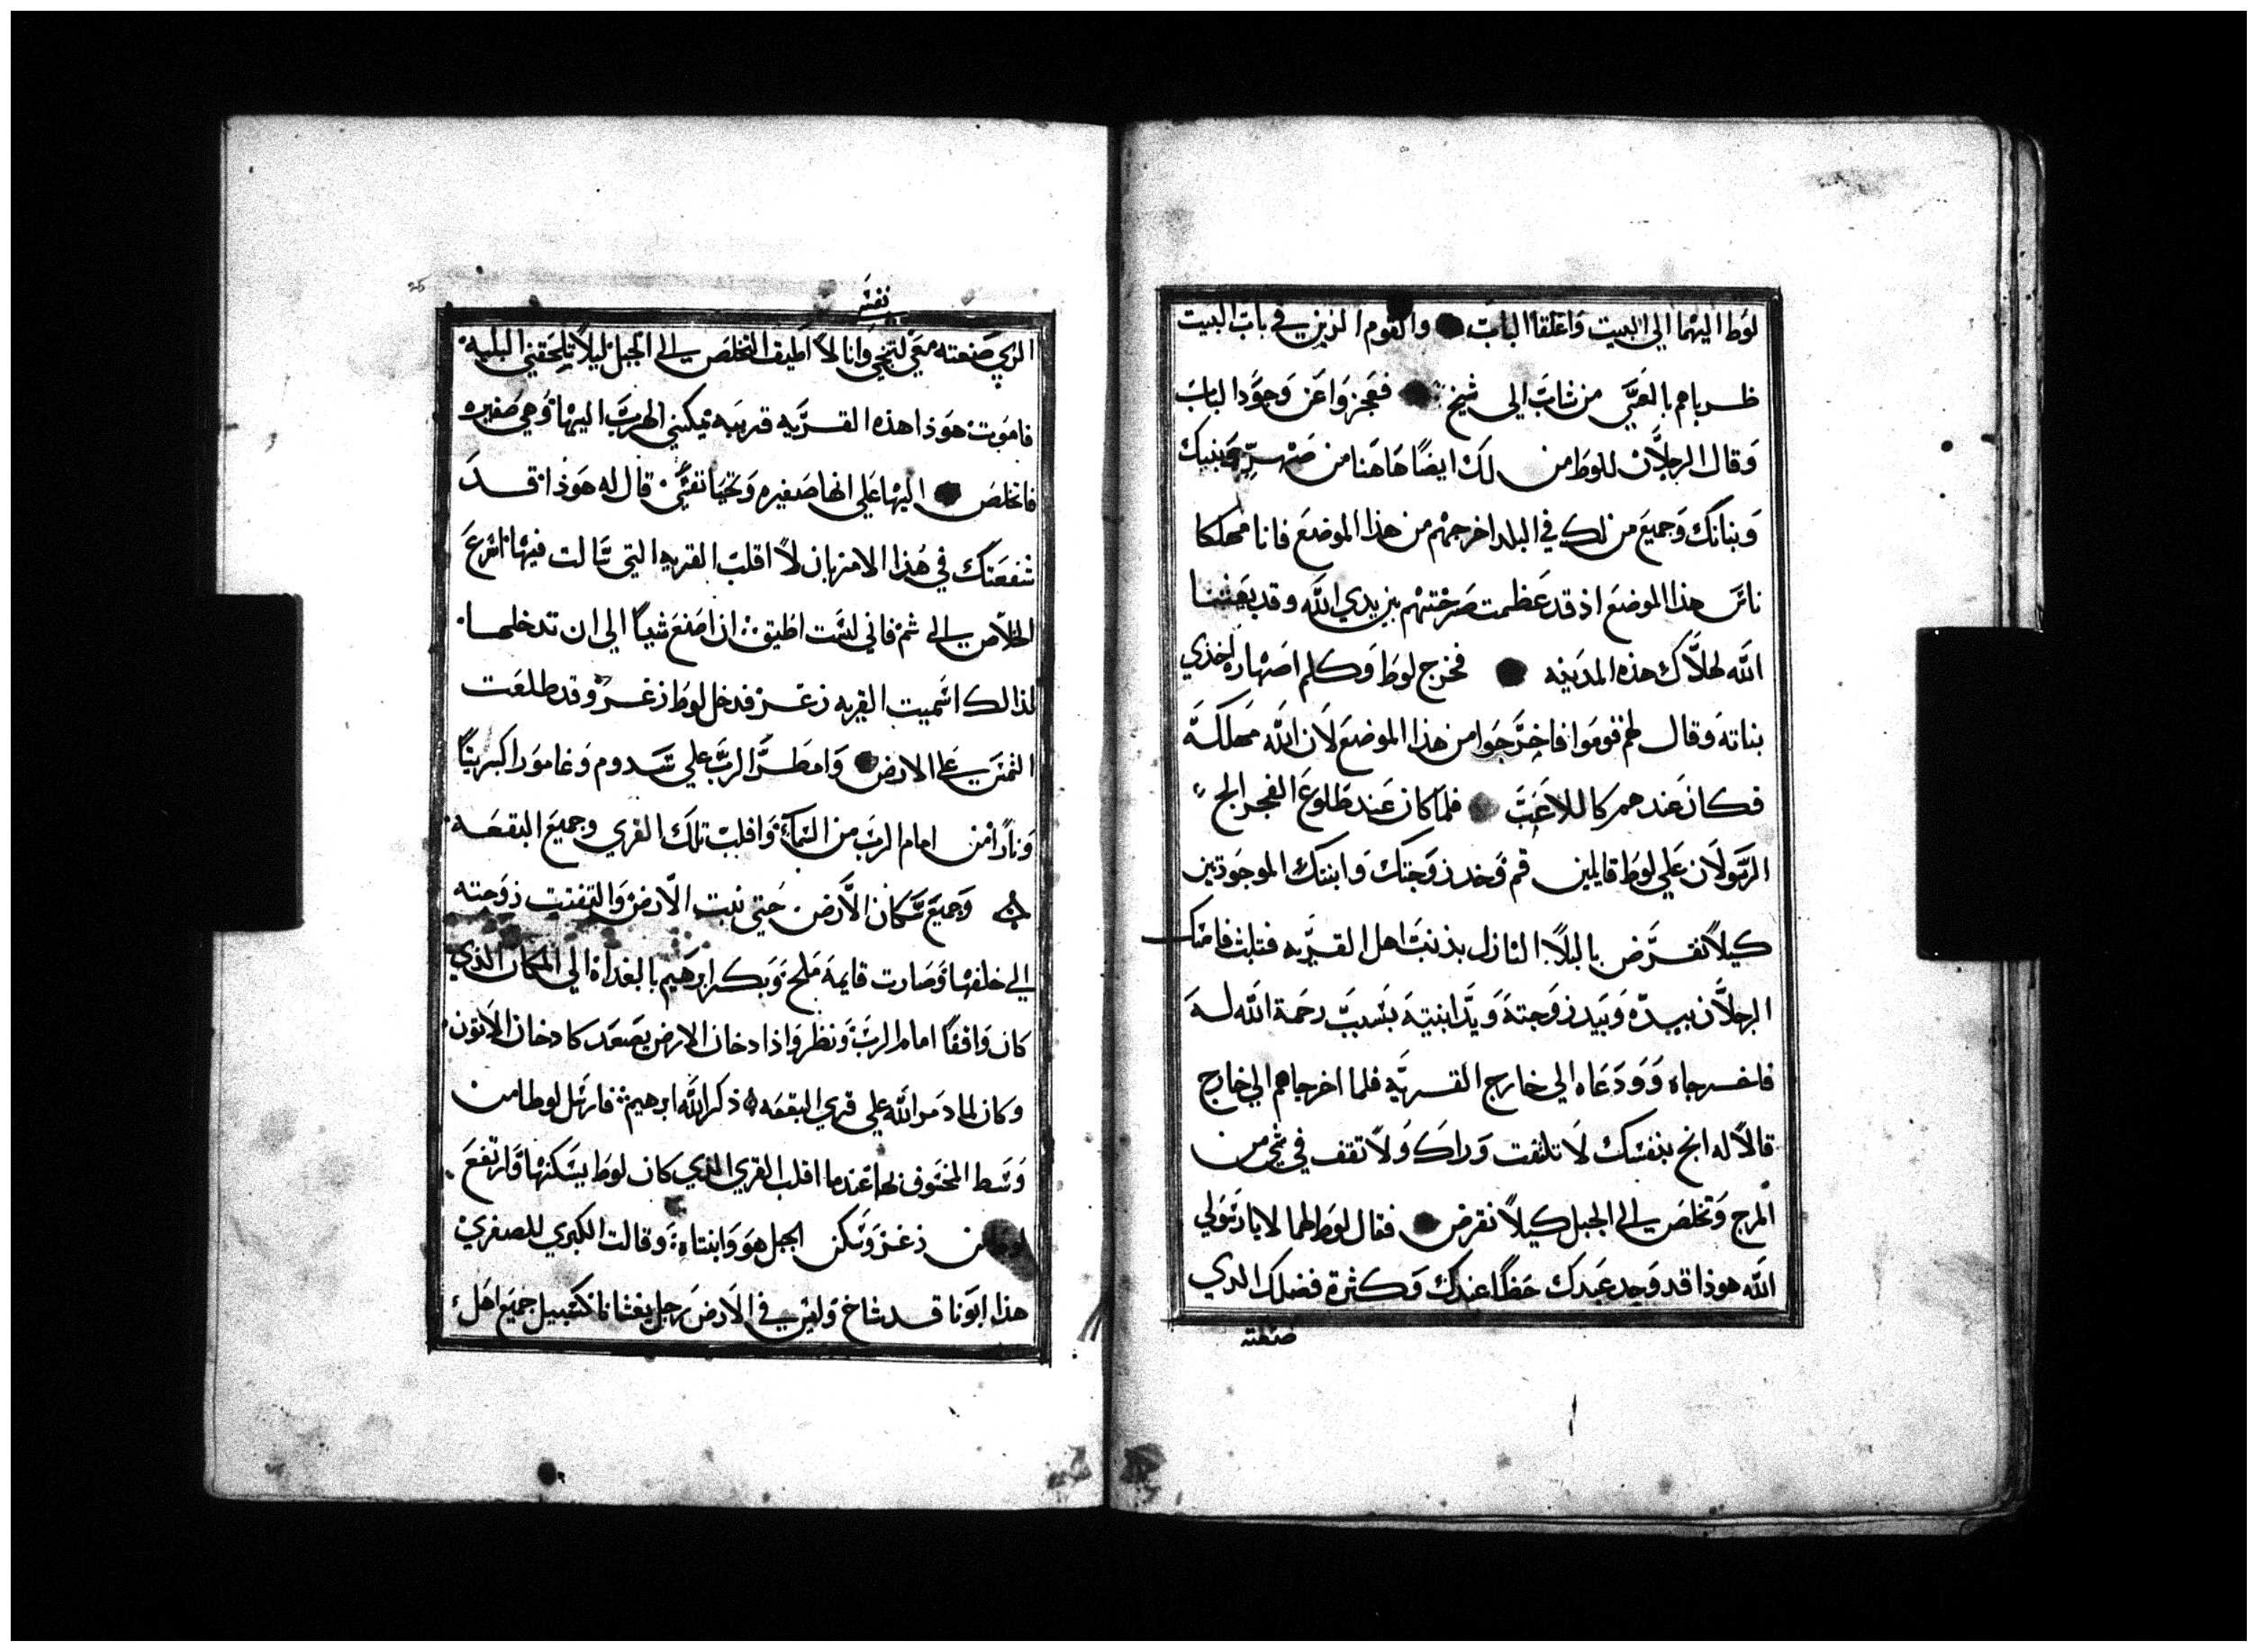 لوط اليهما الي البيت واغلقا الباب والقوم الزين في باب البيت
ضرباهم بالعمي من شاب الي شيخ فعجزوا عن وجود الباب
وقال الرجلان للوط من لك ايضا هاهنا من صهر وبنيك
وبناتك وجميع من لك في البلد اخرجهم من هذا الموضع فانا مهلكا
ناس هذا الموضع اذ قد عظمت صرختهم بين يدي الله وقد بعثنا
الله لهلاك هذه المدينه فخرج لوط وكلم اصهاره اخذي
بناته وقال لهم قوموا فاخرجوا من هذا الموضع لان الله مهلكه
فكان عندهم كاللاعب فلما كان عند طلوع الفجر الح
الرسولان علي لوط قايلين قم وخد زوجتك وابنتك الموجودتين
كيلا تقرض بالبلا النازل بذنب اهل القريه فتلبث فامسك
الرجلان بيده وبيد زوجته ويد ابنتيه بسبب رحمة الله له
فاخرجاه وودعاه الي خارج القريه فلما اخرجاهم الي خارج
قالا له انج بنفسك لا تلتفت وراك ولا تقف في شي من
المرج وتخلص الي الجبل كيلا تقرض فقال لوط لهما لا يا رسولي
الله هوذا قد وجد عبدك حظا عندك وكثرة فضلك الدي
صنعته
25
نفسي
الزي صنعته معي لتنجي وانا لا اطيق التخلص الي الجبل ليلا تلحقني البليه
فاموت هوذا هذه القريه قريبه يمكنني الهرب اليها وهي صغيره
فاتخلص اليها علي انها صغيره وتحيا نفسي قال له هوذا قد
شفعتك في هذا الامر بان لا اقلب القريه التي سالت فيها اسرع
الخلاص الي ثم فاني لست اطيق ان اصنع شيا الي ان تدخلها
لذالك اسميت القريه زغر فدخل لوط زغر وقد طلعت
الشمس علي الارض وامطر الرب علي سدوم وغامورا كبريتا
ونارا من امام الرب من السما واقلب تلك القري وجميع البقعه
وجميع سكان الارض حتي نبت الارض والتفتت زوجته
الي خلفها وصارت قايمة ملح وبكر ابرهيم بالغداة الي المكان الذي
كان واقفا امام الرب ونظر واذا دخان الارض يصعد كادخان الاتون
وكان لما دمر الله علي قري البقعه ذكر الله ابرهيم فارسل لوطا من
وسط المخسوف بها عندما اقلب القري الذي كان لوط يسكنها وارتفع
لوط من زغر وسكن الجبل هو وابنتاه وقالت الكبري للصغري
هذا ابونا قد شاخ وليس في الارض رجل يغشانا كسبيل جميع اهل